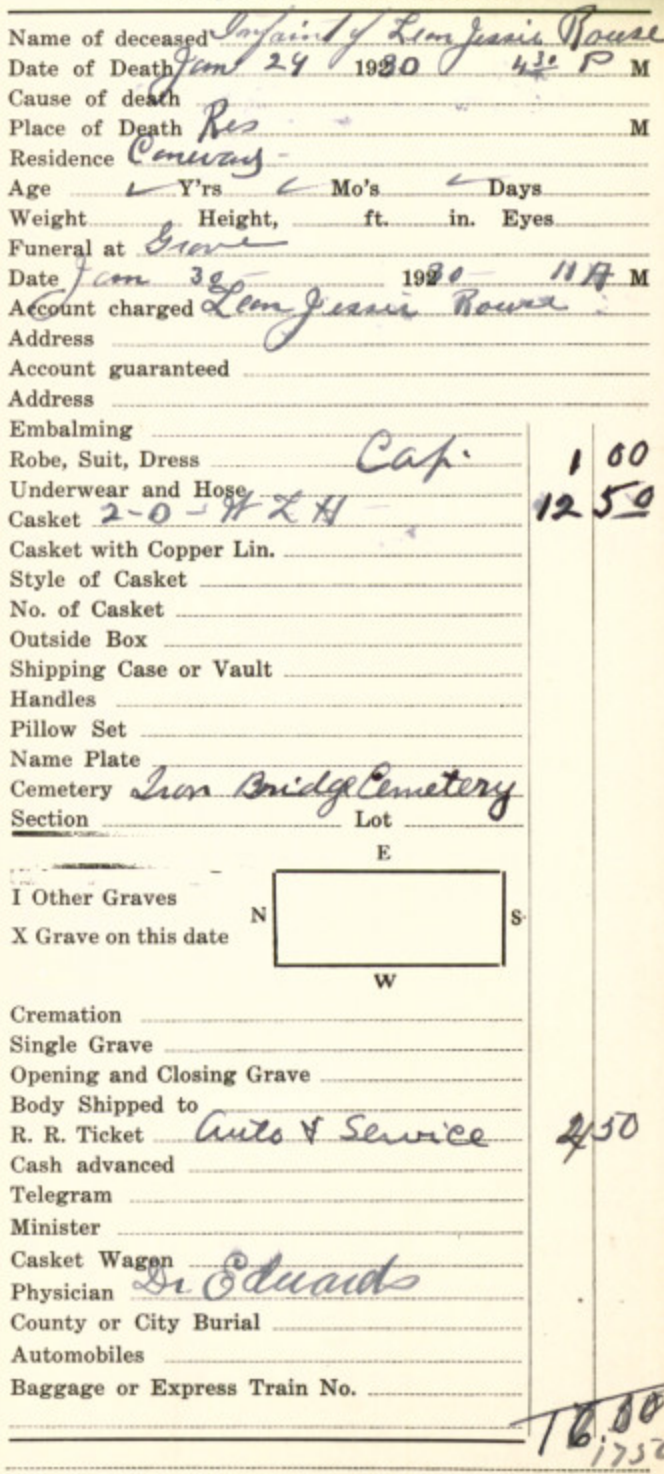 Name of deceased Infaint of Leon Jessie Rouse
Date of Death Jan 29 1930 4 30 P M
Cause of death
Place of Death Res M
Residence Conway -
Age Y'rs Mo's Days
Weight Height, ft. in. Eyes
Funeral at Grove
Date Jan 30 - 1930 - 11 A M
Account charged Leon Jessie Rouse
Address
Account guaranteed
Address
Embalming
Robe, Suit, Dress Cap. 1 00
Underwear and Hose
Casket 2-0 - 12 50
Casket with Copper Lin.
Style of Casket
No. of Casket
Outside Box
Shipping Case or Vault
Handles
Pillow Set
Name Plate
Cemetery Iron Bridge Cemetery
Section Lot
E
I Other Graves
N S
X Grave on this date
W
Cremation
Single Grave
Opening and Closing Grave
Body Shipped to
R. R. Ticket Auto & Service 50
Cash advanced
Telegram
Minister
Casket Wagon
Physician Dr Edwards
County or City Burial
Automobiles
Baggage or Express Train No.
16.00
1750